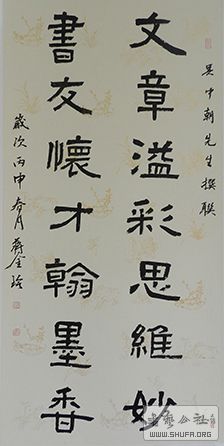 吴中朝先生撰联
文章溢彩思維妙
書友懷才翰墨香
歲次丙申春月
书艺公社
WWW.SHUFA.ORG